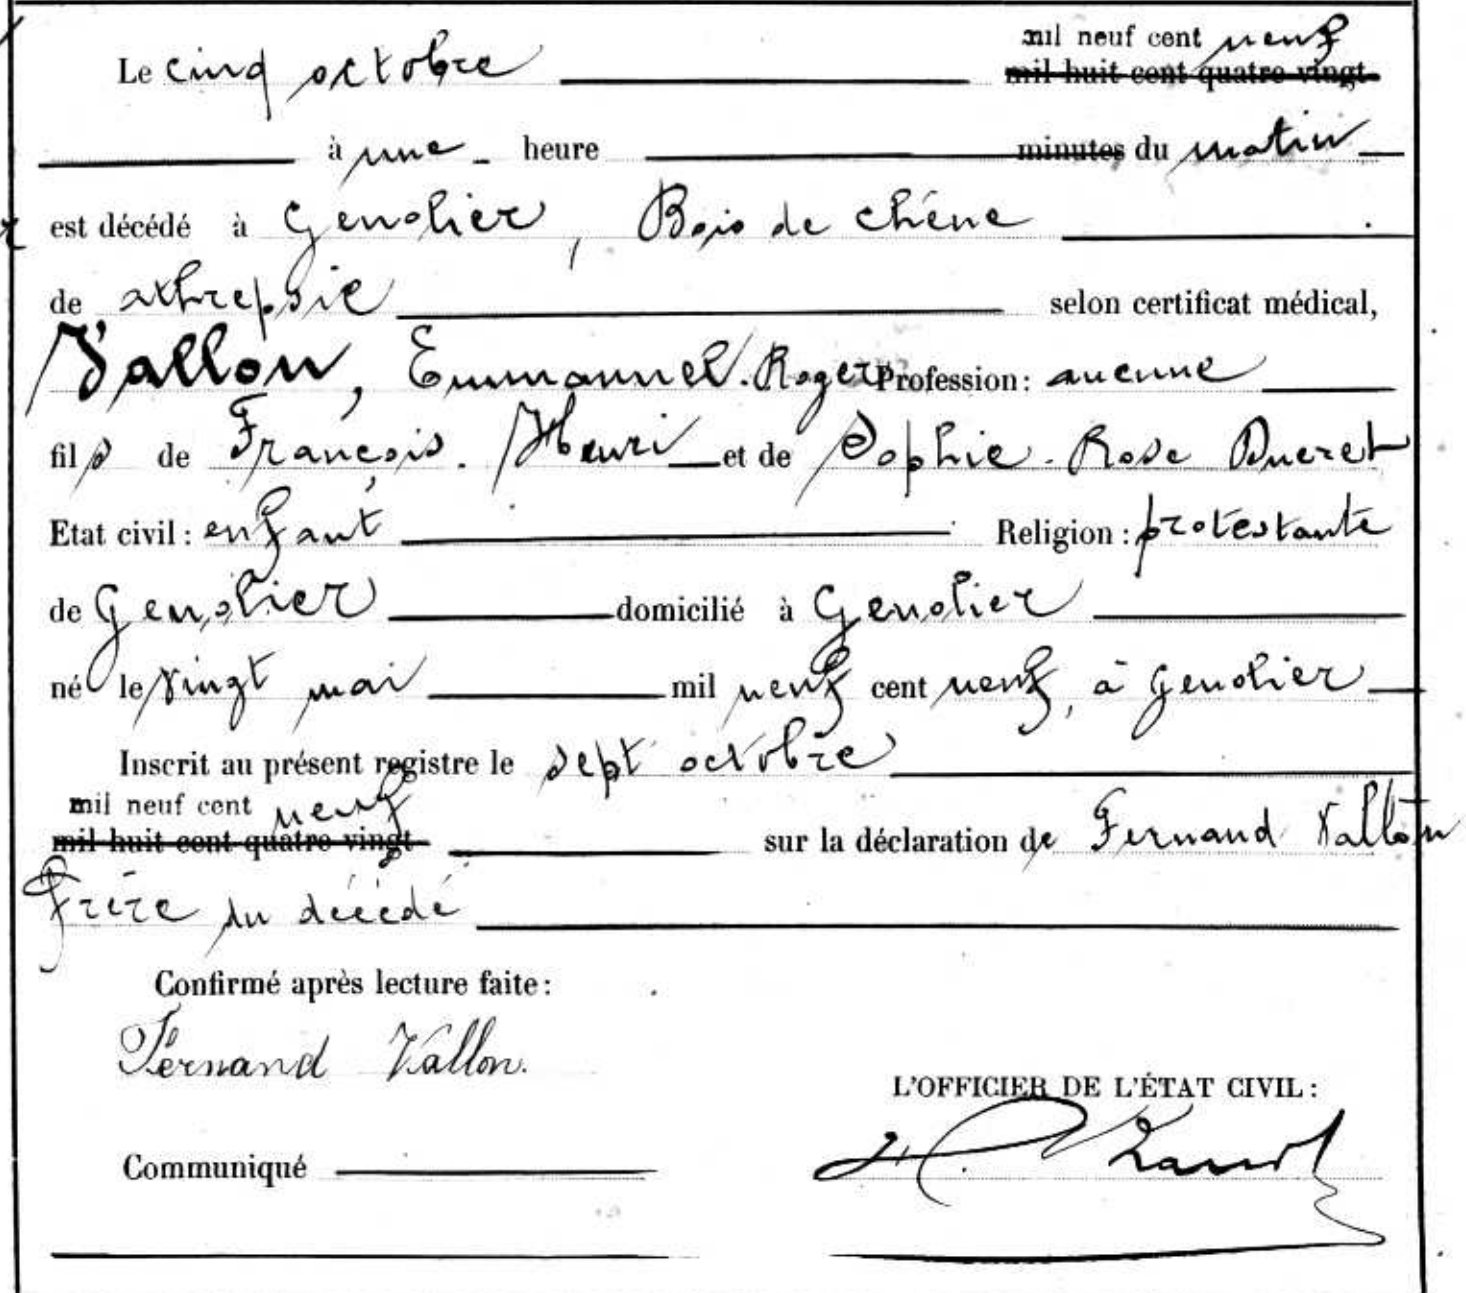 Le cinq octobre mil neuf cent neuf
mil huit cent quatre vingt
à une heure minutes du matin
est décédé à Genolier, Bois de Chêne
de athrepsie selon certificat médical,
Vallon, Emmanuel. Roger Profession: aucune
fils de François. Henri et de Sophie. Rose Ducret
Etat civil: enfant Religion: protestante
de Genolier domicilié à Genolier
né le vingt mai mil neuf cent neuf, à Genolier
Inscrit au présent registre le sept octobre
mil neuf cent neuf
mil huit cent quatre vingt sur la déclaration de Fernand Vallon
frère du décédé
Confirmé après lecture faite:
Fernand Vallon.
L'OFFICIER DE L'ÉTAT CIVIL:
Communiqué